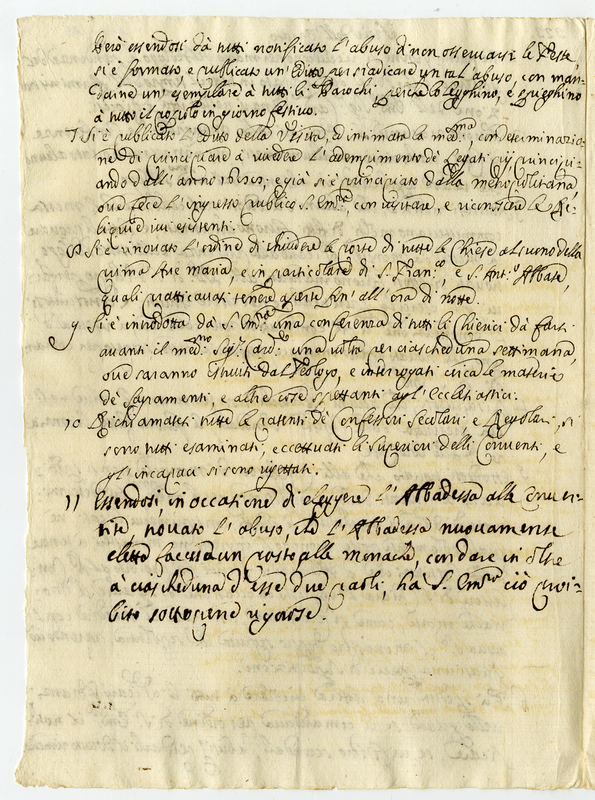 Però essendosi dà tutti notificato l'abuso di non osservarsi le Feste,
si è formato, e publicato un'Editto per sradicare un tal'abuso, con man-
darne un'esemplare à tutti li Parochi, perche lo leghino, e spieghino
à tutto il popolo in giorno festivo.
7 Si è publicato l'Editto della Visita, ed intimata la med:ma, con determinazio-
ne di principiare à vedere l'adempimento de Legati pij principi-
ando dall'anno e già si è principiato dalla metropolitana,
ove fece l'ingresso publico S. Em:za, con visitare, e riconoscere le Re-
liquie ivi esistenti.
8 Si è rinovato l'ordine di chiudere le porte di tutte le Chiese al suono della
prima Ave maria, e in particolare di S. Fran:co, e S. Ant:o Abbate,
quali pratticavasi tenere aperte fin'all'ora di notte.
9 Si è introdotta dà S. Em:za una conferenza di tutti li Chierici dà farsi
avanti il med:mo Sig:r Card:le una volta per ciascheduna settimana,
ove saranno istruiti dal Teologo, e interrogati circa le materie
de Sagramenti, e altre cose spettanti agl'Ecclesiastici.
10 Richiamatesi tutte le patenti de Confessori Secolari, e Regolari, si
sono tutti esaminati, eccettuati li Superiori delli Conventi, e
gl'incapaci si sono rigettati.
11 Essendosi, in occasione di eleggere l'Abbadessa alle Conver-
tite, trovato l'abuso, che l'Abbadessa nuovamente
eletta facesse un pasto alle monache, con dare in oltre
à ciascheduna d'Esse due paoli, hà S. Em:za ciò proi-
bito sotto pene rigorose.